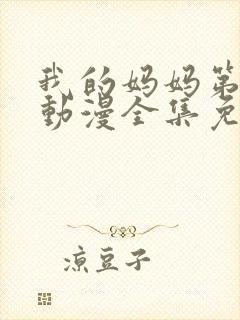 我的妈妈第
動漫全集免
凉豆子